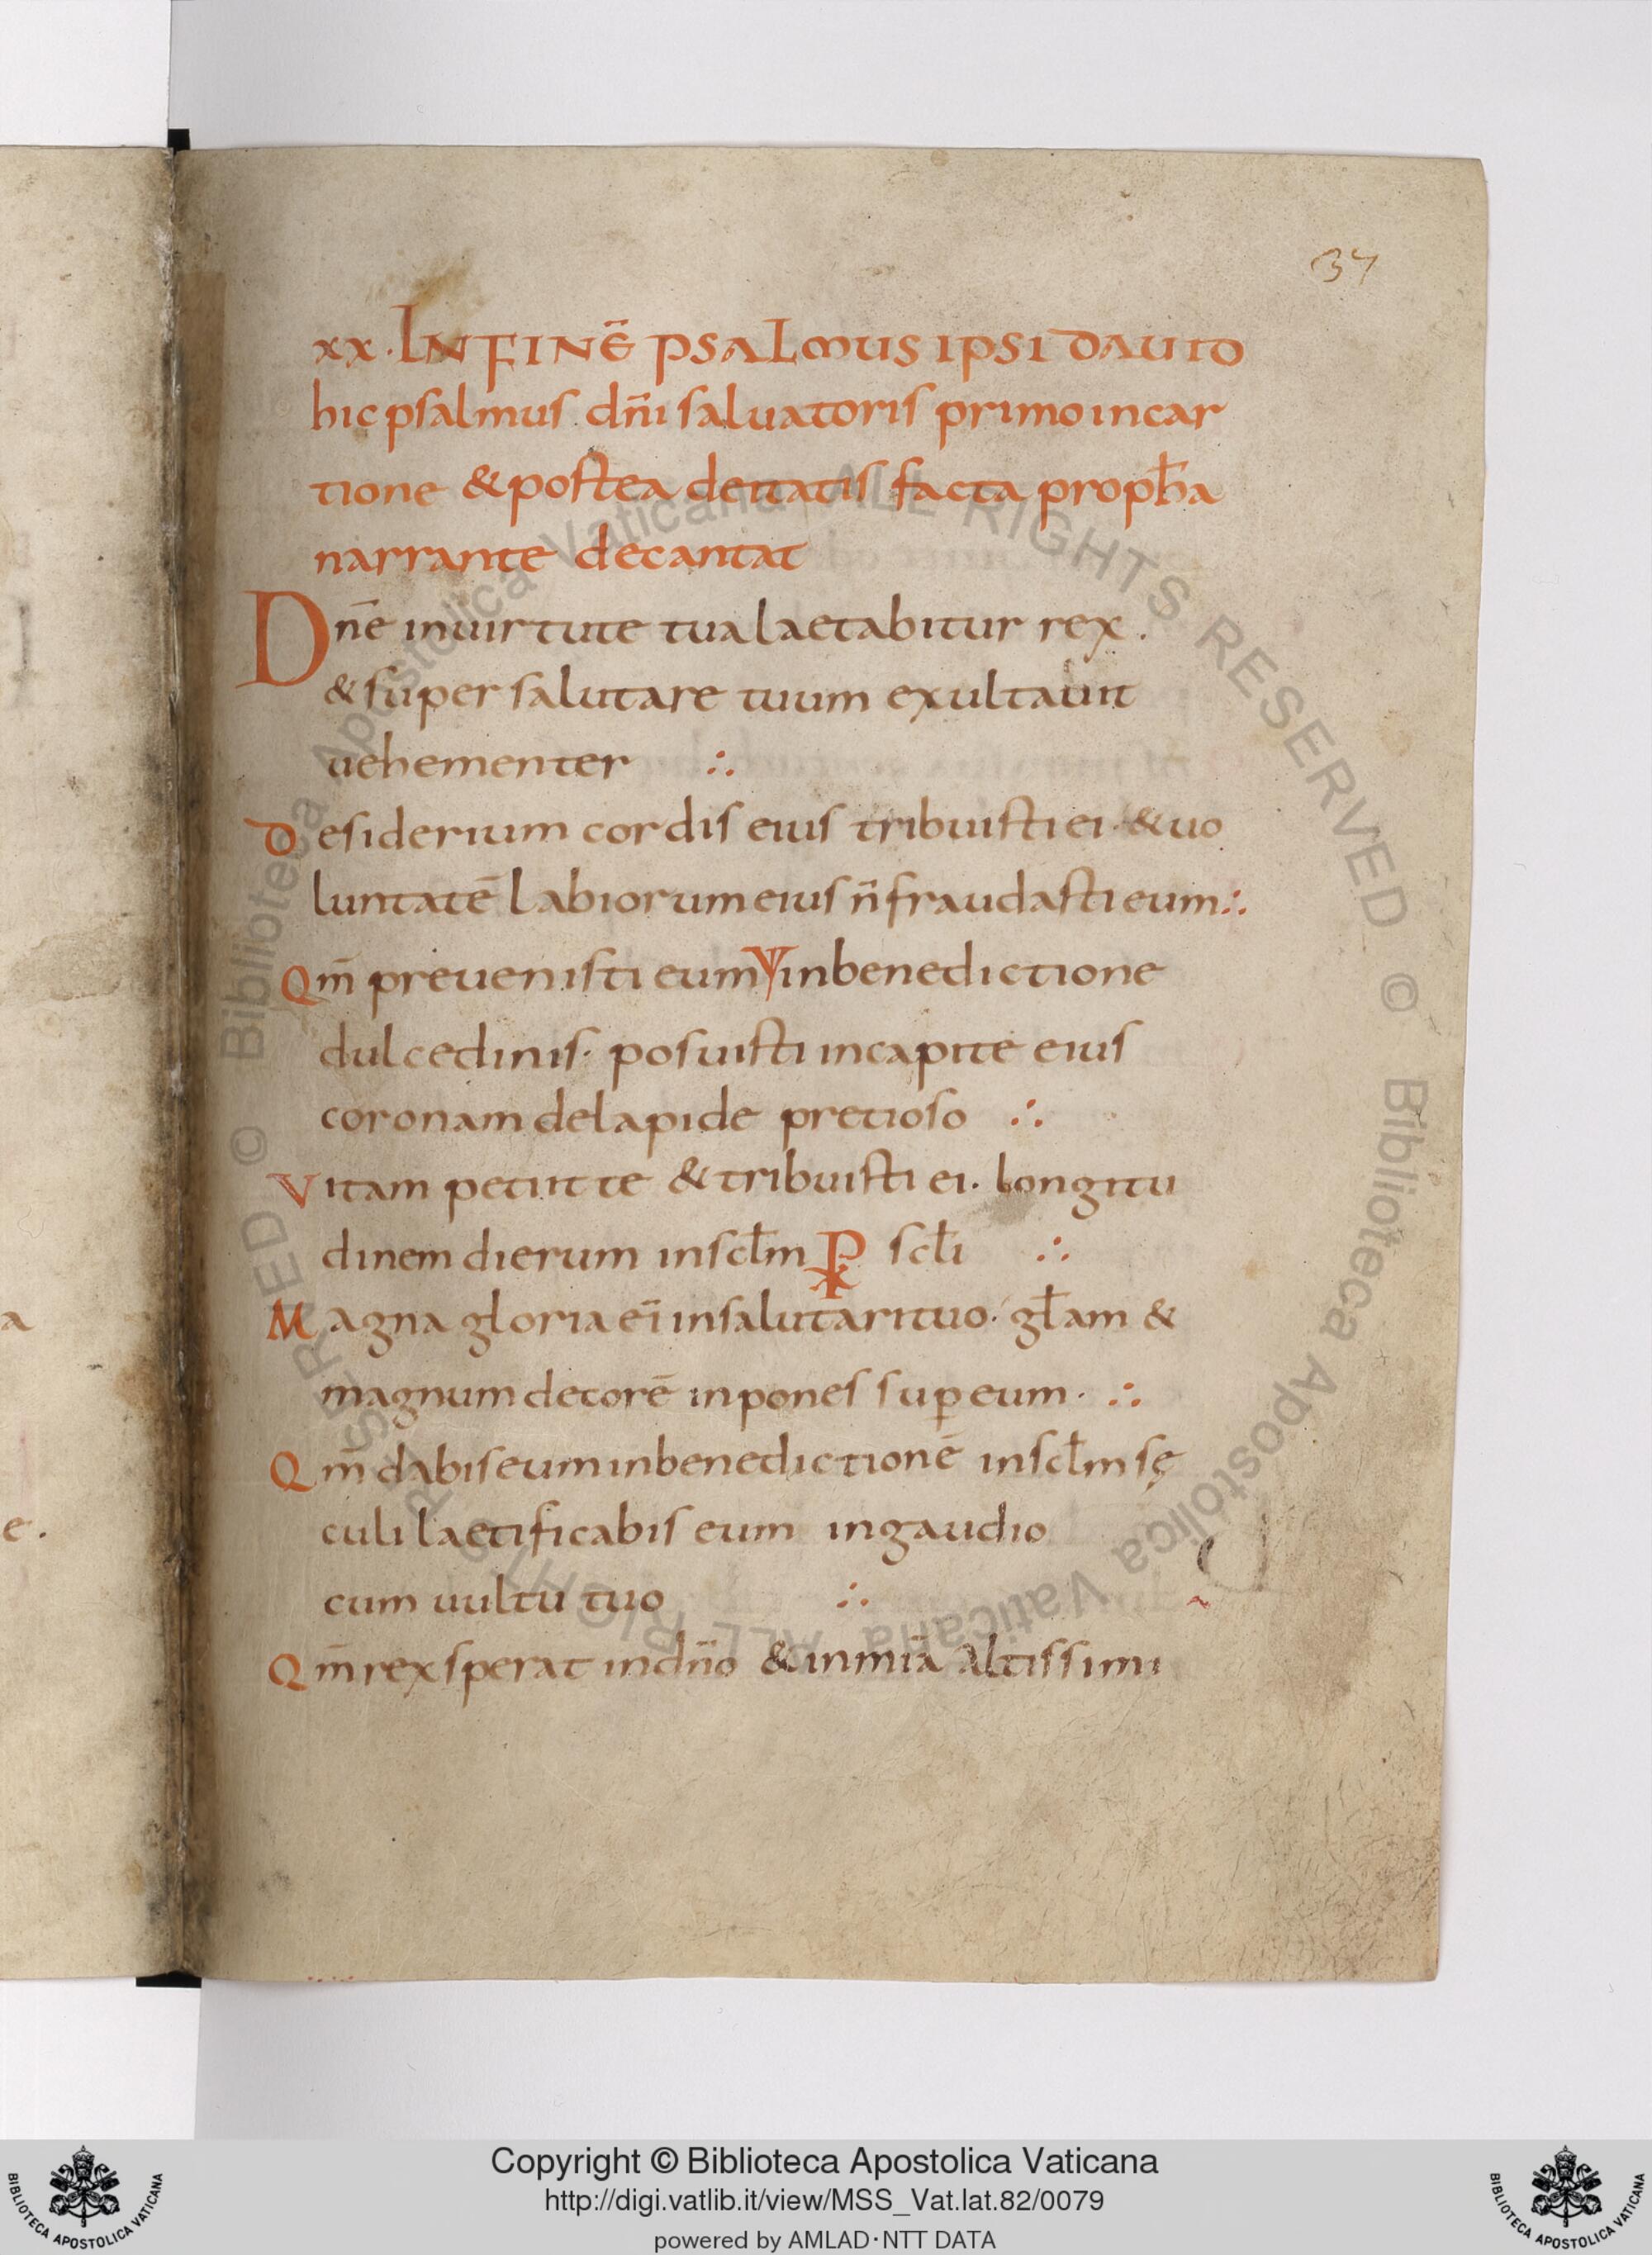 37
xx. IN FINẼ PSALMUS IPSI DAUID
hic psalmus dñi saluatoris primo incar
tione & postea deitatis facta proph̄a
narrante decantat
Dnē in uirtute tua laetabitur rex.
& super salutare tuum exultauit
uehementer ∴
Desiderium cordis eius tribuisti ei · & uo
luntatē labiorum eius n̄ fraudasti eum ∴
Qm̄ preuenisti eum in benedictione
dulcedinis · posuisti in capite eius
coronam de lapide pretioso ∴
Vitam petiit te & tribuisti ei. longitu
dinem dierum in scł̄m ⳩ scł̄i ∴
Magna gloria eī in salutari tuo · gł̄am &
magnum decorē inpones suꝑ eum · ∴
Qm̄ dabis eum in benedictionē in scł̄m sę
culi laetificabis eum in gaudio
cum uultu tuo ∴
Qm̄ rex sperat in dño & in mīa altissimi
a
e.
© Biblioteca Apostolica Vaticana ALL RIGHTS RESERVED © Biblioteca Apostolica Vaticana ALL RIGHTS RESERVED
Copyright © Biblioteca Apostolica Vaticana
http://digi.vatlib.it/view/MSS_Vat.lat.82/0079
powered by AMLAD·NTT DATA
BIBLIOTECA APOSTOLICA VATICANA
BIBLIOTECA APOSTOLICA VATICANA